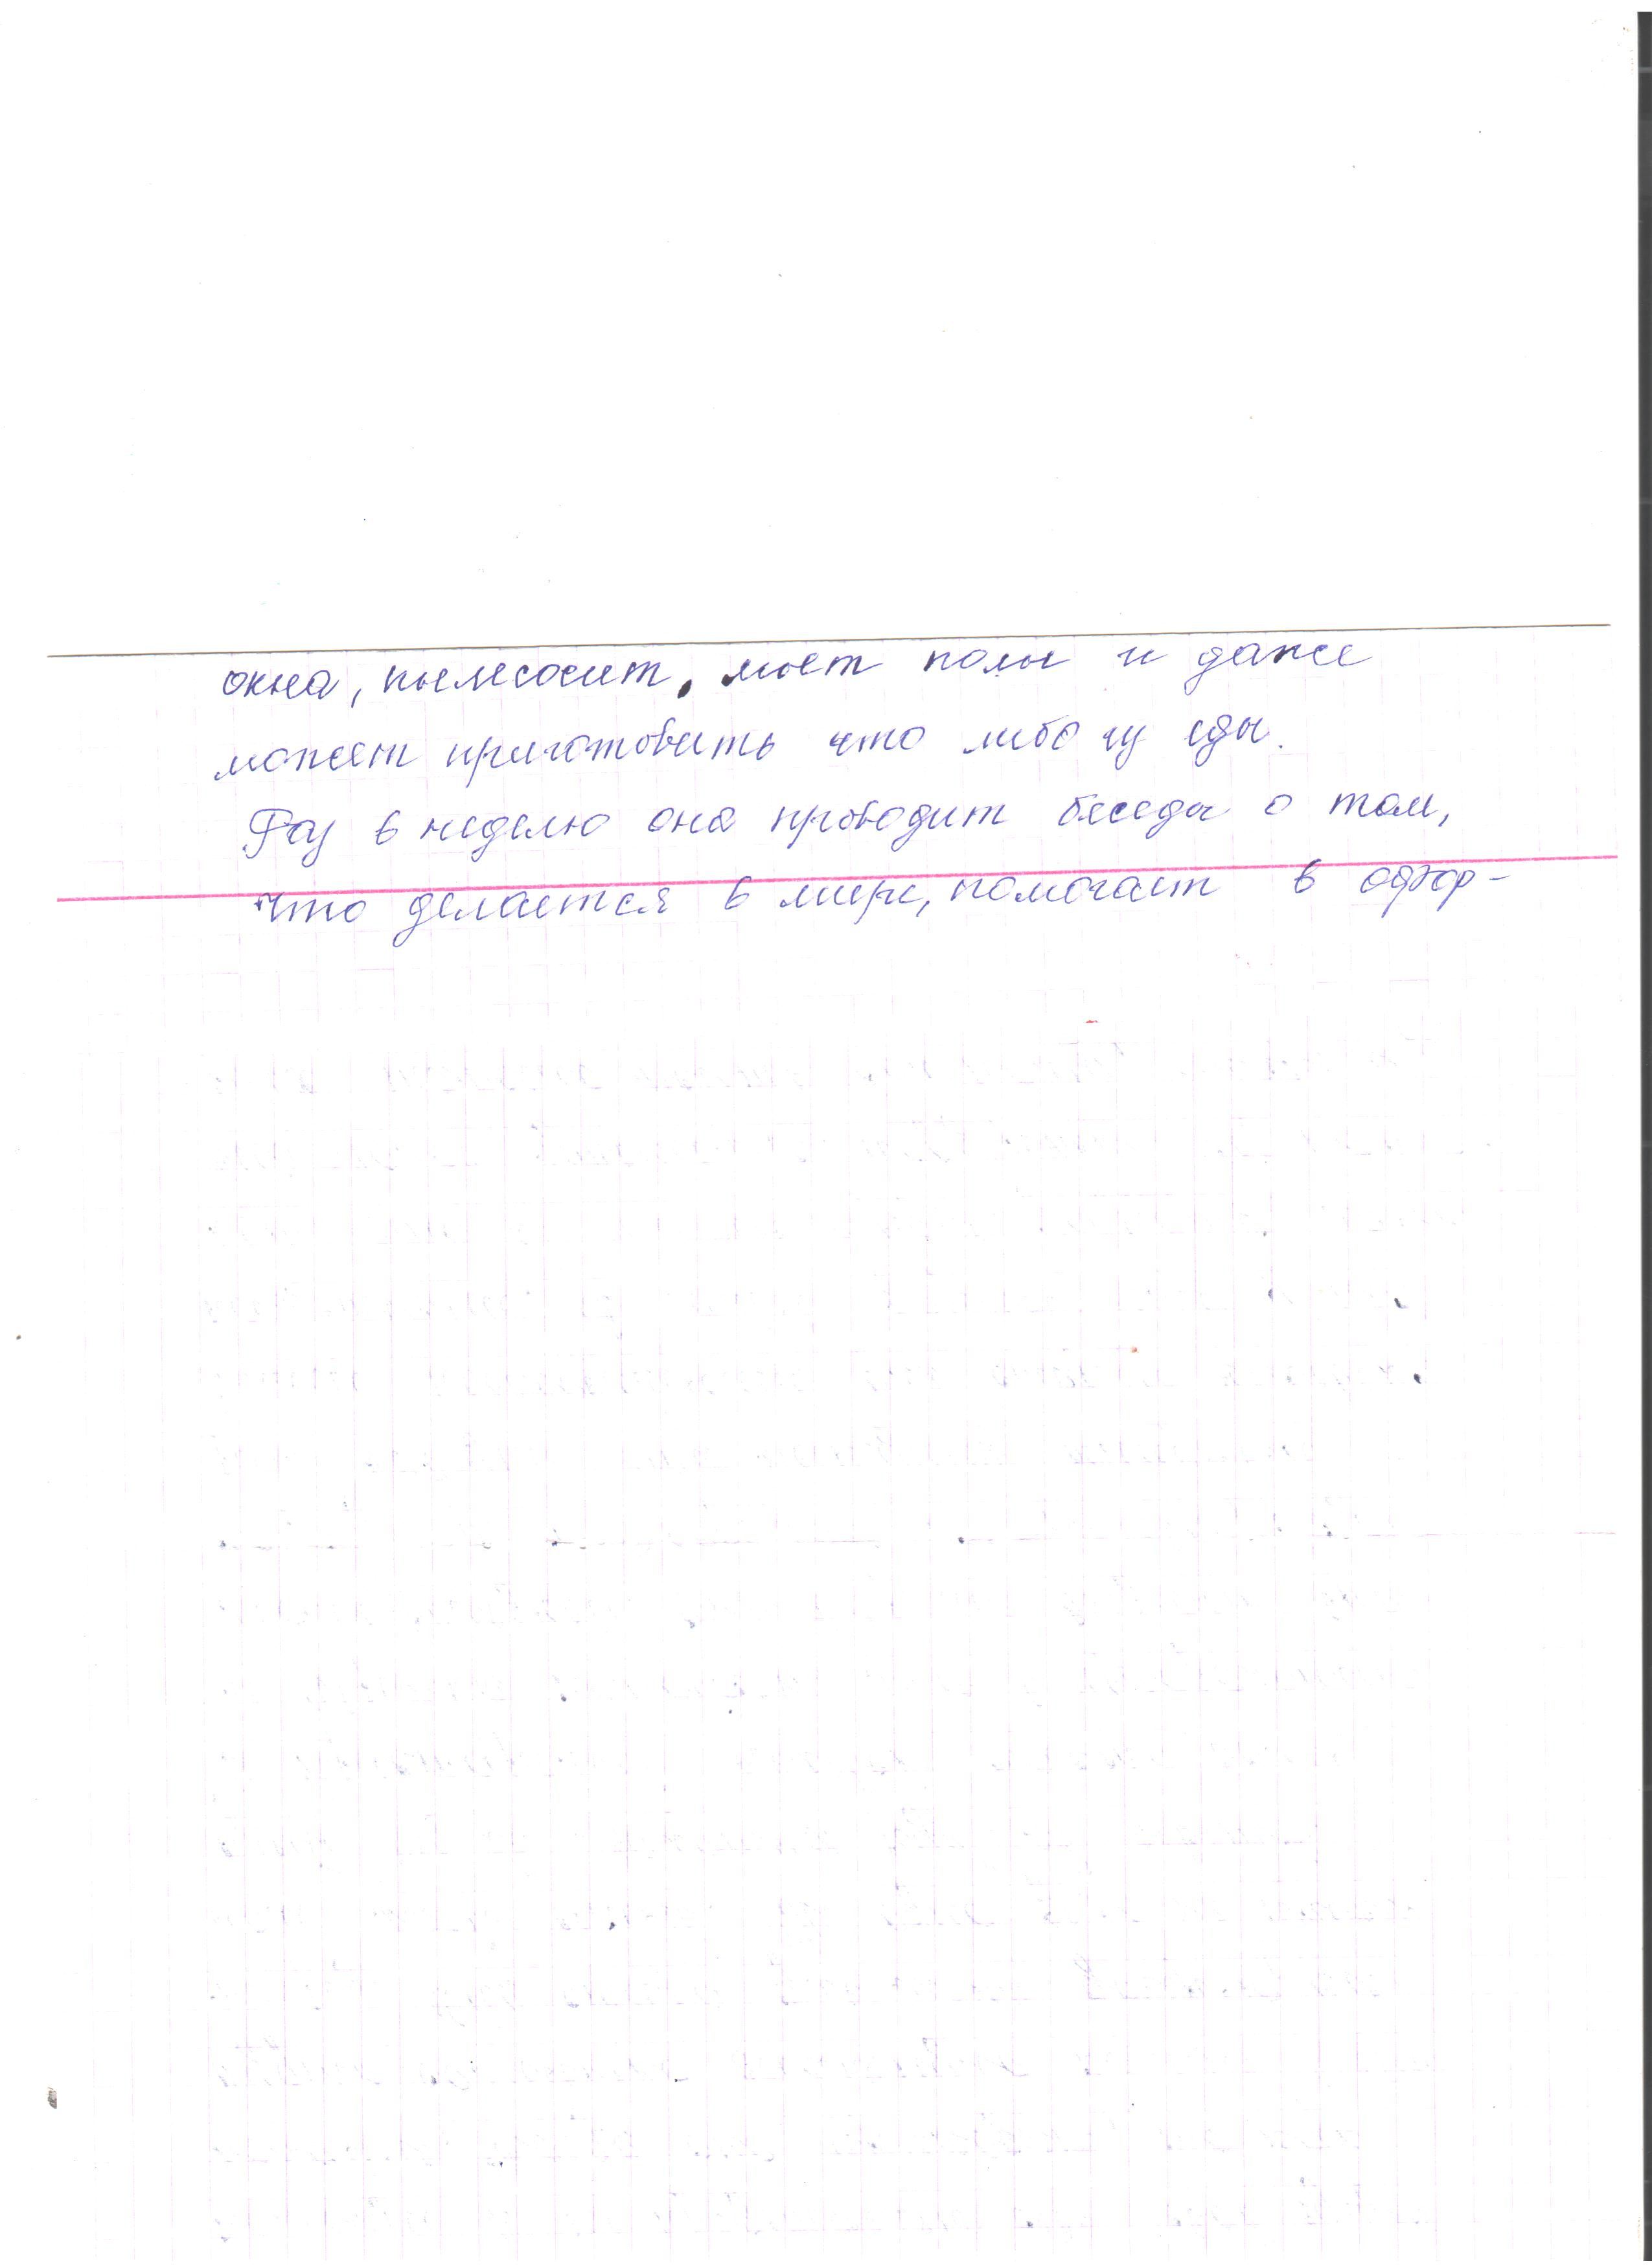 окна, пылесосит, моет полы и даже
может приготовить что либо из еды.
Раз в неделю она проводит беседы о том,
что делается в мире, помогает в офор-